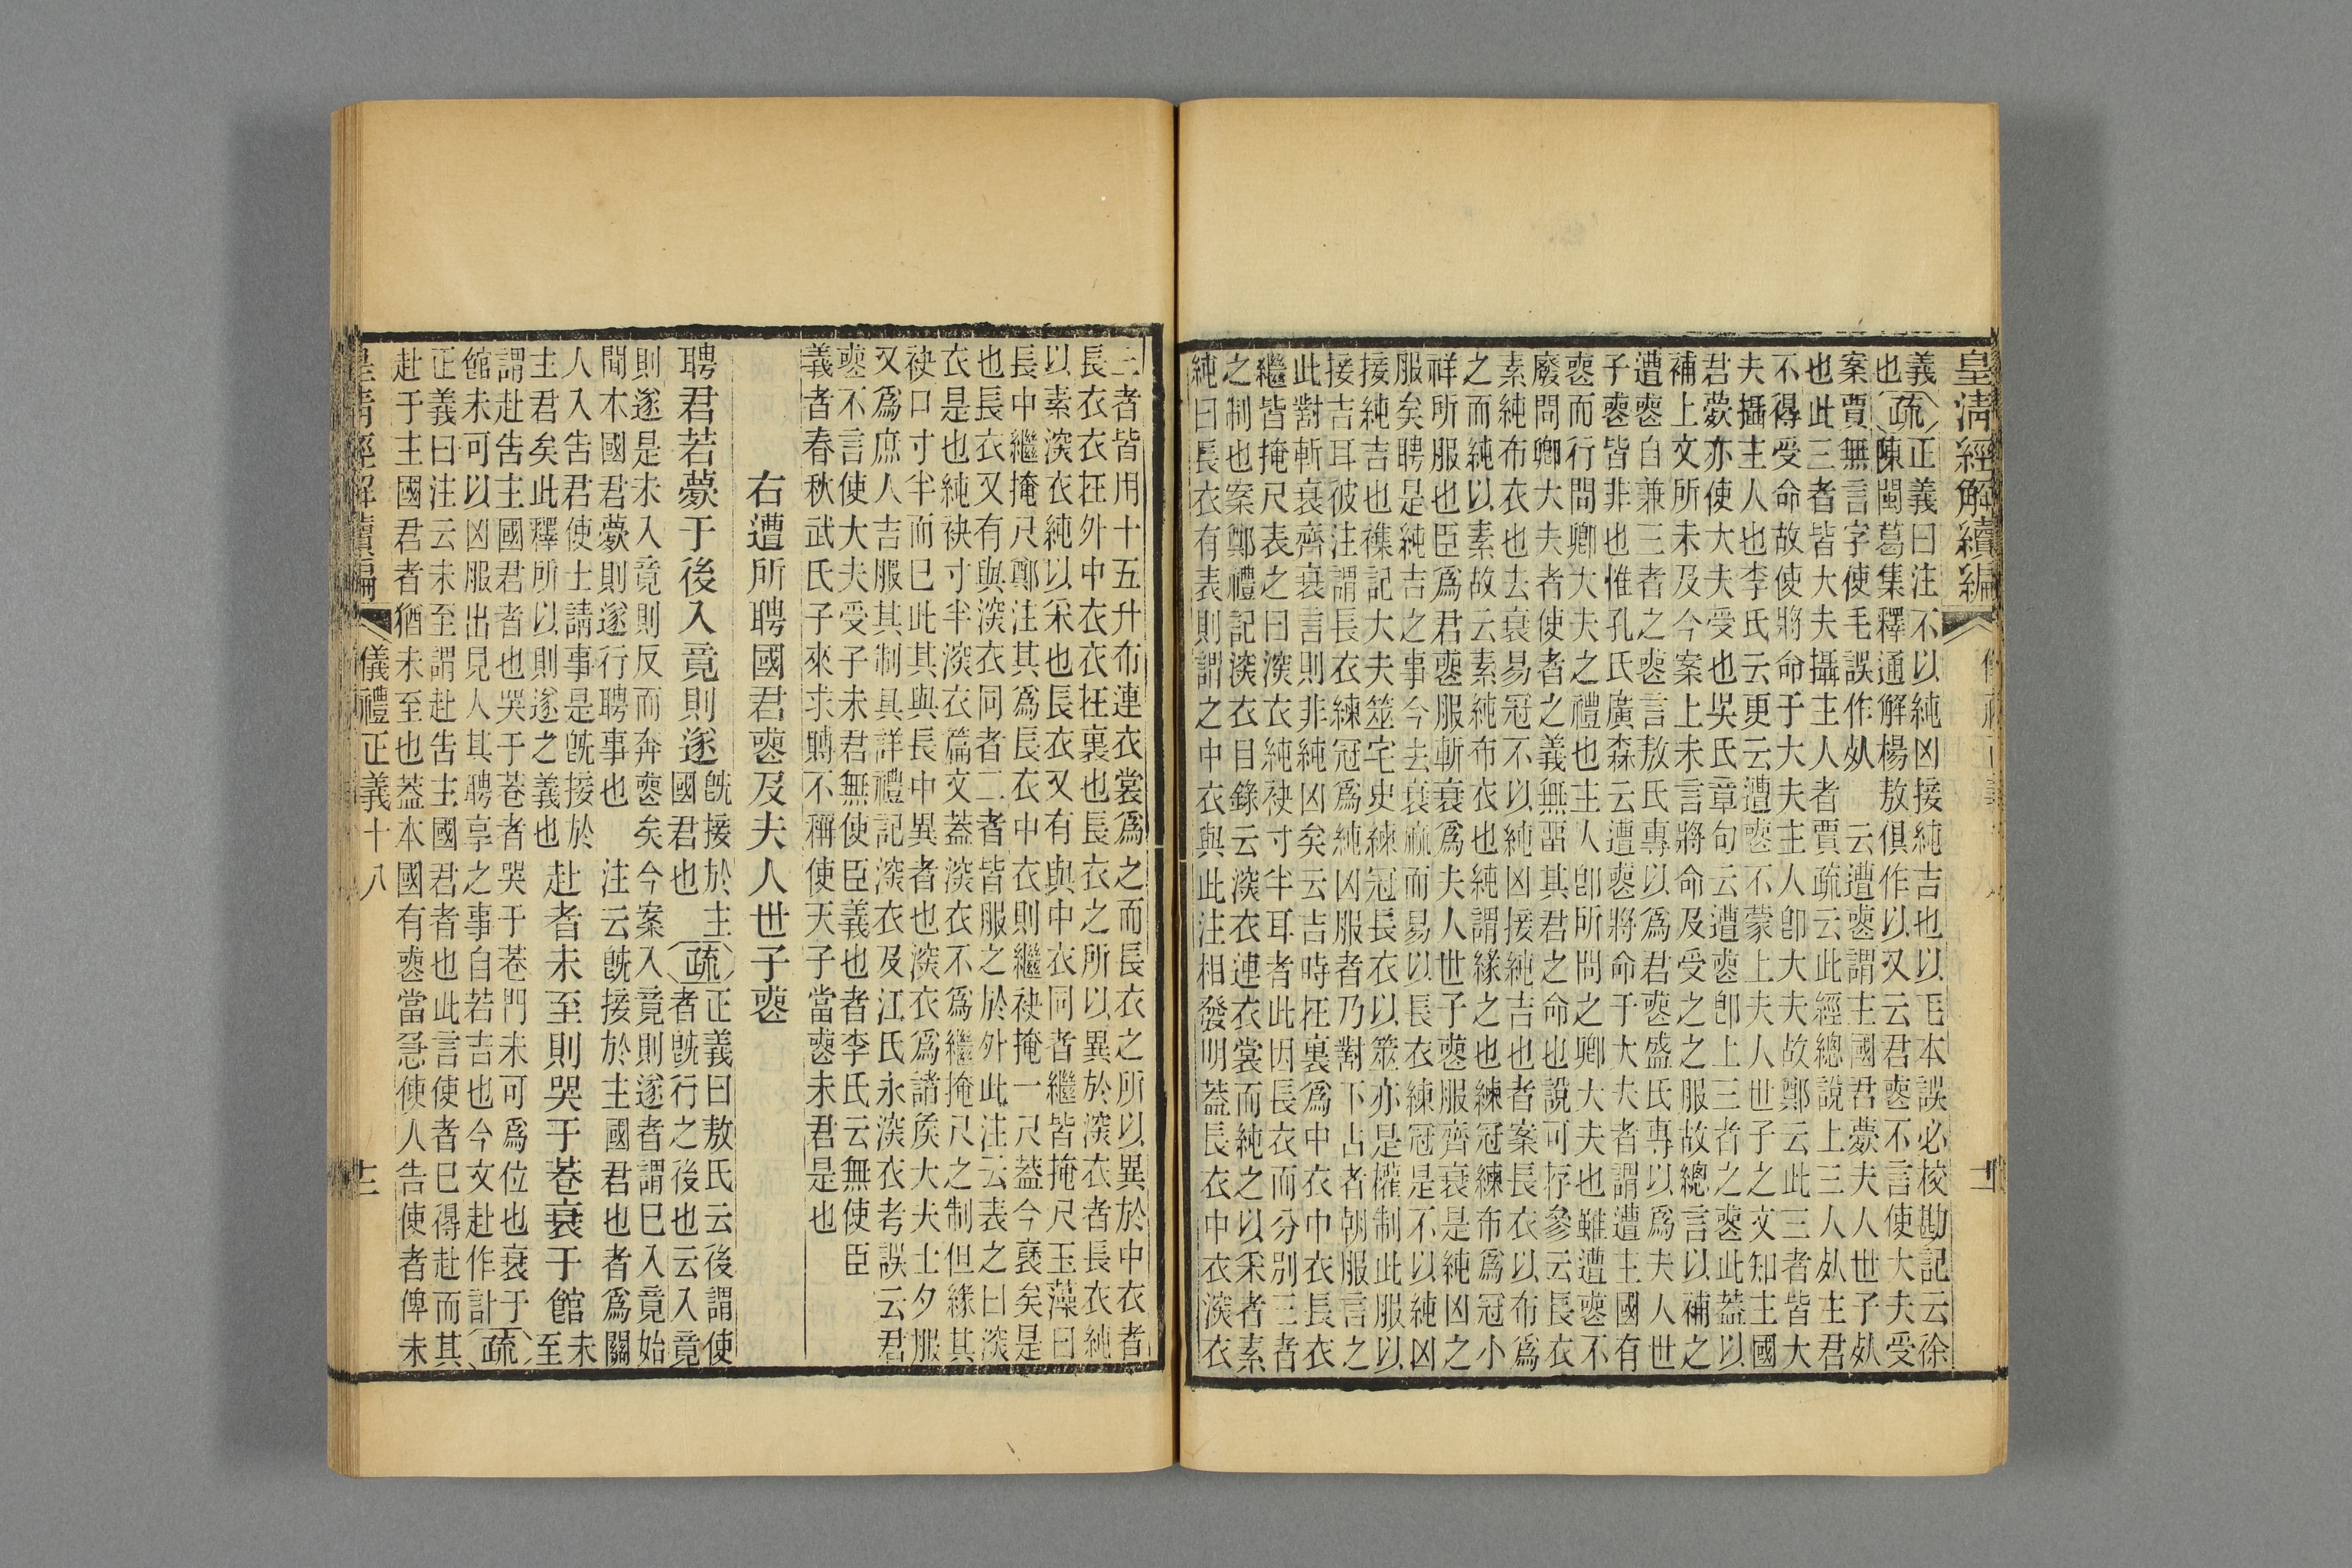 皇清經解續編
義也以純凶接純吉也以毛本誤必校勘記云徐
也疏陳閩葛集釋通解楊敖俱作以又云君薨不言使大夫受
案賈無言字使毛誤作䢼云遭喪謂主國君薨夫人世子䢼
也此三者皆大夫攝主人者賈疏云此經總說上三人䢼主君
不得受命故使將命于大夫主人卽大夫故鄭云此三者皆大
夫攝主人也李氏云更云遭喪不蒙上夫人世子之文知主國
君薨亦使大夫受也吳氏章句云遭喪卽上三者之喪此蓋以
補上文所未及今案上未言將命及受之之服故總言以補之
遭喪自兼三者之喪言敖氏專以爲君喪盛氏專以爲夫人世
子喪皆非也惟孔氏廣森云遭喪將命于大夫者謂遭主國有
喪而行問卿大夫之禮也主人卽所問之卿大夫也雖遭喪不
廢問卿大夫者使者之義無畱其君之命也說可存參云長衣
素純布衣也去衰易冠不以純凶接純吉也者案長衣以布爲
之而純以素故云素純布衣也純謂緣之也練冠練布爲冠小
祥所服也臣爲君喪服斬衰爲夫人世子喪服齊衰是純凶之
服矣聘是純吉之事今去衰絰而易以長衣練冠是不以純凶
接純吉也襍記大夫筮宅史練冠長衣以筮亦是權制此服以
接吉耳彼注謂長衣練冠爲純凶服者乃對下占者朝服言之
此對斬衰齊衰言則非純凶矣云吉時在裏爲中衣中衣長衣
繼皆掩尺表之曰深衣純袂寸半耳者此因長衣而分別三者
之制也案鄭禮記深衣目錄云深衣連衣裳而純之以采者素
純曰長衣有表則謂之中衣與此注相發明蓋長衣中衣深衣
三者皆用十五升布連衣裳爲之而長衣之所以異於中衣者
長衣衣在外中衣衣在裏也長衣之所以異於深衣者長衣純
以素深衣純以采也長衣又有與中衣同者繼皆掩尺玉藻曰
長中繼掩尺鄭注其爲長衣中衣則繼袂掩一尺蓋今褎矣是
也長衣又有與深衣同者二者皆服之於外此注云表之曰深
衣是也純袂寸半深衣篇文蓋深衣不爲繼掩尺之制但緣其
袂口寸半而已此其與長中異者也深衣爲諸侯大夫士夕服
又爲庶人吉服其制具詳禮記深衣及江氏永深衣考誤云君
喪不言使大夫受子未君無使臣義也者李氏云無使臣
義者春秋武氏子來求賻不稱使天子當喪未君是也
右遭所聘國君喪及夫人世子喪
聘君若薨于後入竟則遂旣接於主國君也疏正義曰敖氏云後謂使者旣行之後也云入竟
則遂是未入竟則反而奔喪矣今案入竟則遂者謂已入竟始
聞本國君薨則遂行聘事也注云旣接於主國君也者爲關
人入告君使士請事是旣接於
主君矣此釋所以則遂之義也赴者未至則哭于巷衰于館未至
謂赴告主國君者也哭于巷者哭于巷門未可爲位也衰于
館未可以凶服出見人其聘享之事自若吉也今文赴作訃疏
正義曰注云未至謂赴告主國君者也此言使者已得赴而其
赴于主國君者猶未至也蓋本國有喪當急使人告使者俾未
皇清經解續編 儀禮正義十八 十二